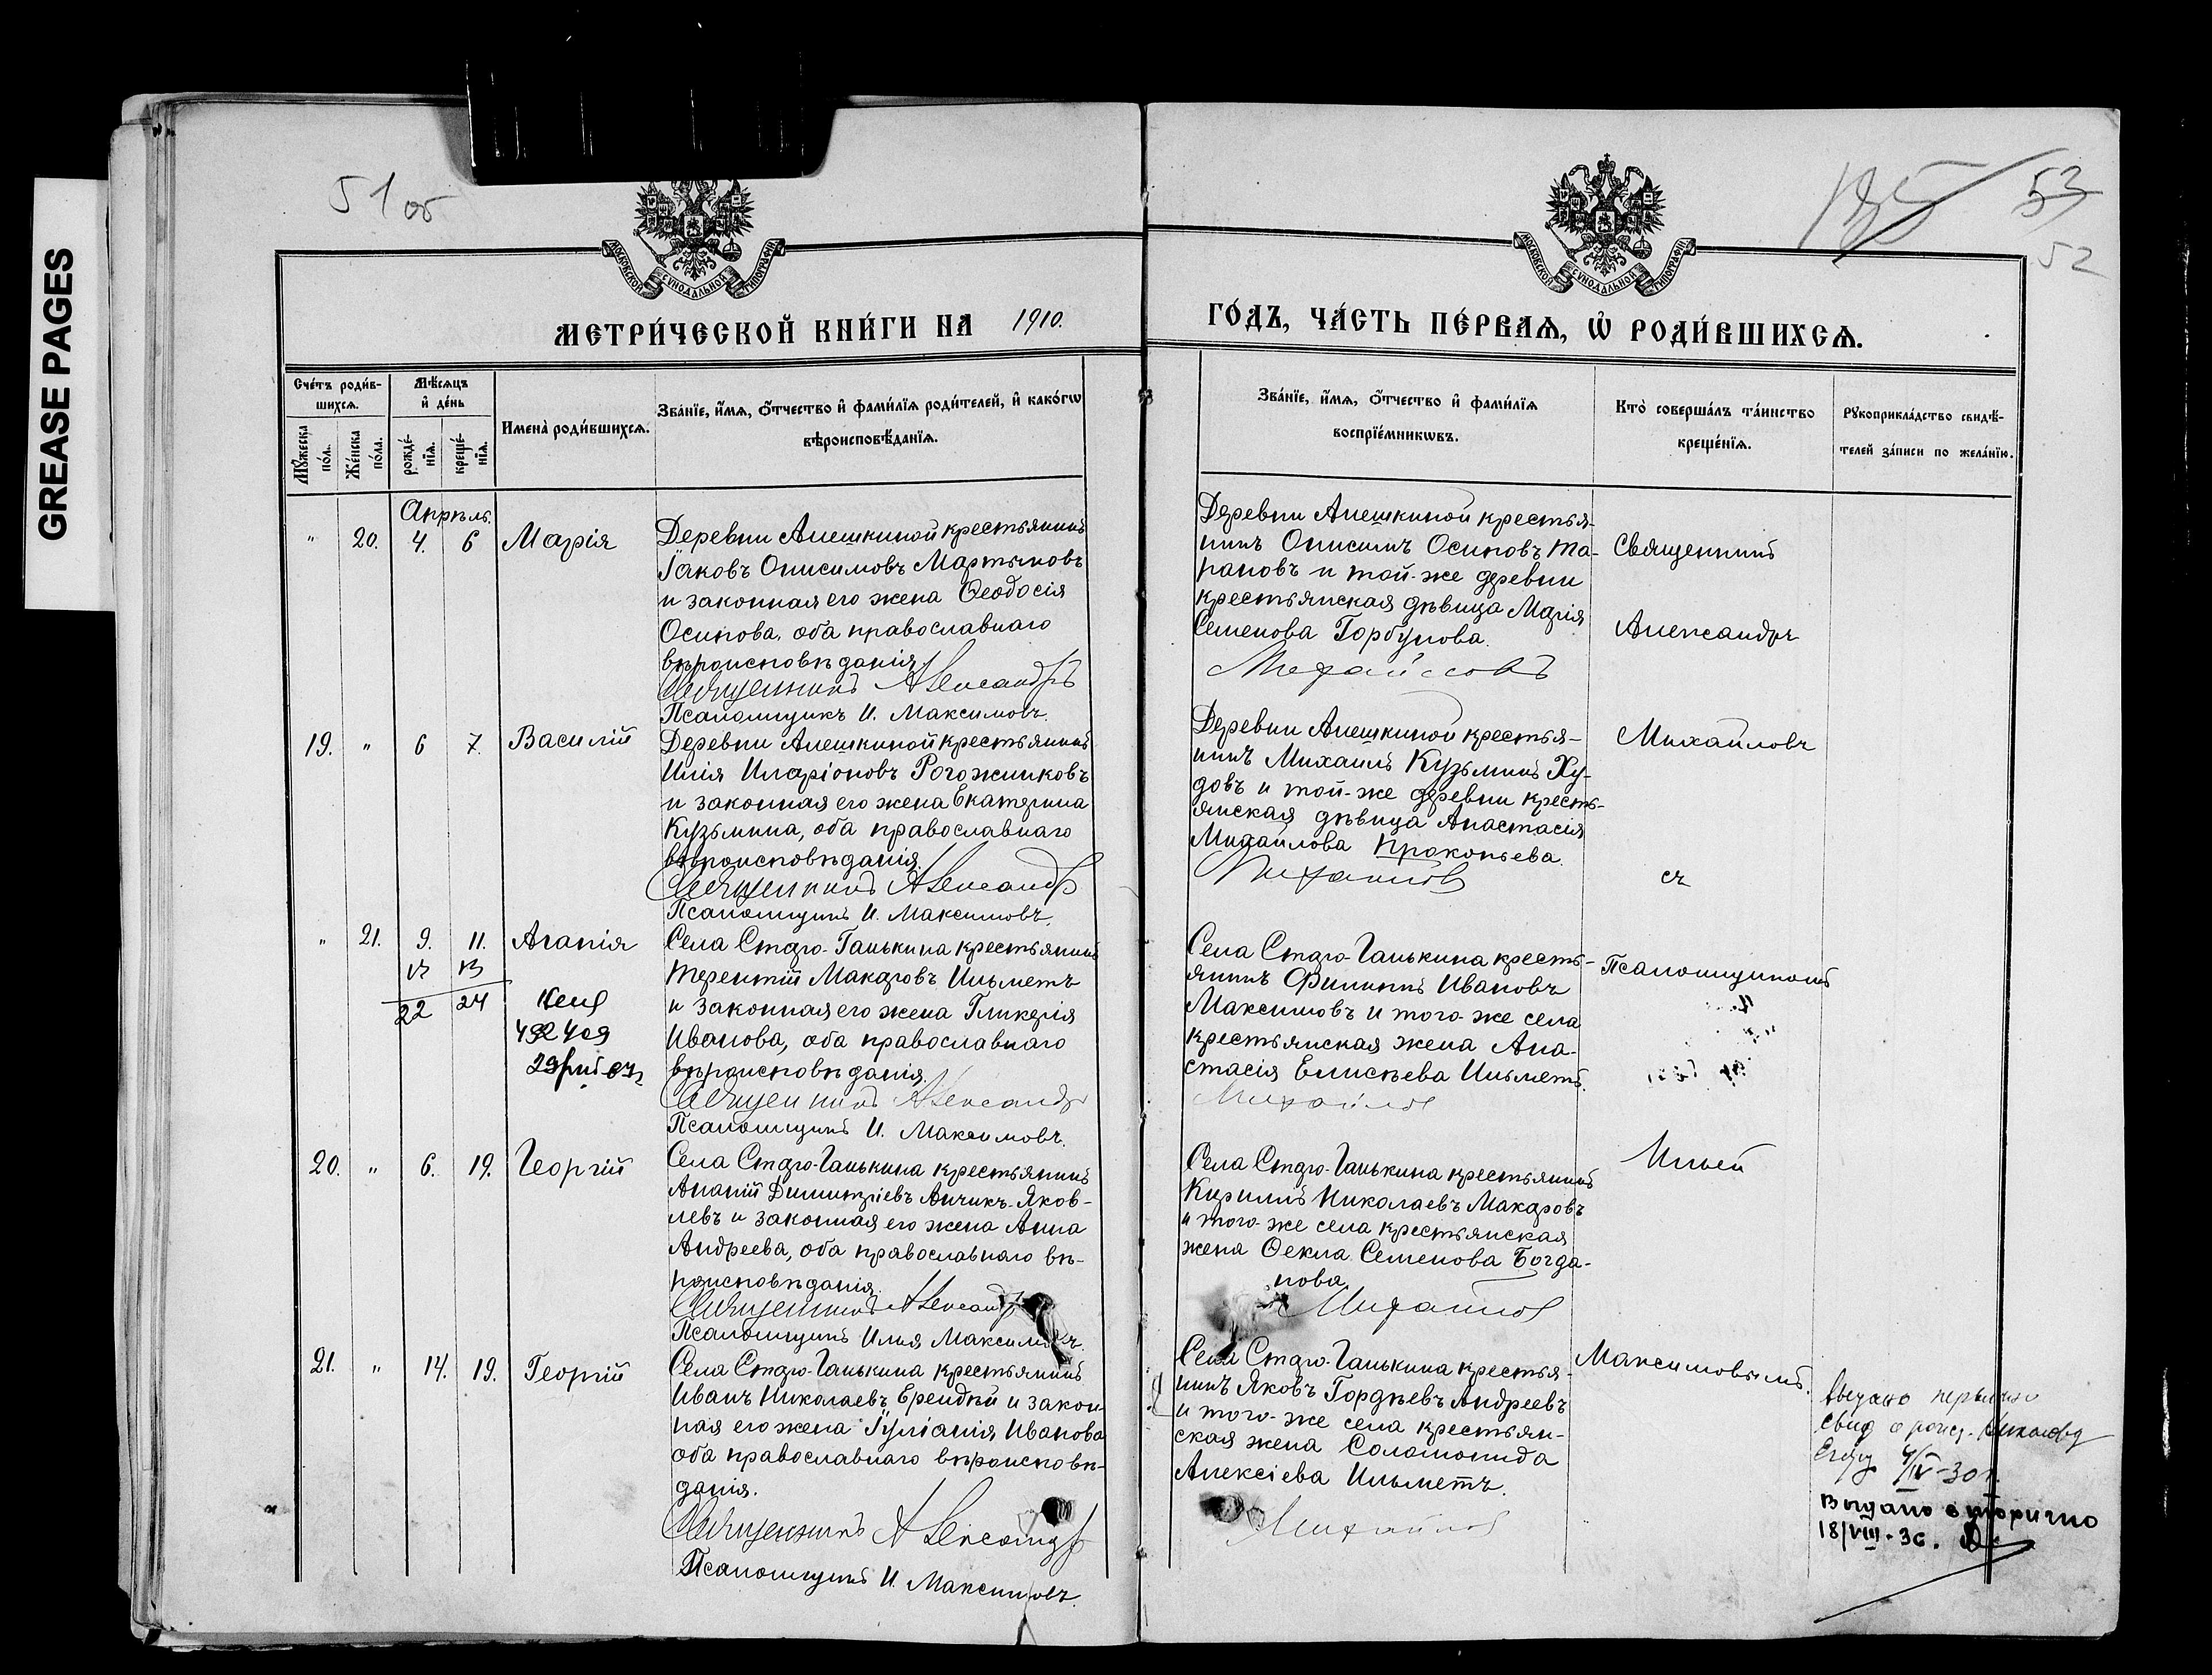 GREASE PAGES
51 об
53
52
МОСКОВСКОЙ СУНОДАЛЬНОЙ ТИПОГРАФІИ
МОСКОВСКОЙ СУНОДАЛЬНОЙ ТИПОГРАФІИ
МЕТРИ́ЧЕСКОЙ КНИ́ГИ НА 1910.
ГО́ДЪ, ЧА́СТЬ ПЕ́РВАѦ, Ѡ҆ РОДИ́ВШИХСѦ.
Сче́тъ роди́в-
шихсѧ.
Мѣ́сѧцъ
и҆ де́нь
Мꙋ́жеска
по́л.
Же́нска
по́ла.
рожде́-
нїѧ.
креще́-
нїѧ.
Имена̀ роди́вшихсѧ.
Зва́нїе, и҆́мѧ, ѻ҆́тчество и҆ фами́лїѧ роди́телей, и҆ како́гѡ
вѣроисповѣ́данїѧ.
Зва́нїе, и҆́мѧ, ѻ҆́тчество и҆ фами́лїѧ
воспрїе́мникѡвъ.
Кто̀ соверша́лъ та́инство
креще́нїѧ.
Рꙋкоприкла́дство свидѣ́-
телей за́писи по жела́нїю.
Апрѣль.
" 20. 4. 6 Марія
Деревни Алешкиной крестьянинъ
Іаковъ Онисимовъ Мартыновъ
и законная его жена Ѳеодосія
Осипова, оба православнаго
вѣроисповѣданія.
Священникъ Александръ
Псаломщикъ И. Максимовъ.
Деревни Алешкиной крестья-
нинъ Онисимъ Осиповъ Та-
рановъ и той-же деревни
крестьянская дѣвица Марія
Семенова Горбунова.
Михайловъ
Священникъ
Александръ
19. " 6 7. Василій
Деревни Алешкиной крестьянинъ
Илія Иларіоновъ Рогожниковъ
и законная его жена Екатерина
Кузьмина, оба православнаго
вѣроисповѣданія.
Священникъ Александр
Псаломщикъ И. Максимовъ.
Деревни Алешкиной крестья-
нинъ Михаилъ Кузьминъ Ху-
довъ и той-же деревни кресть-
янская дѣвица Анастасія
Михайлова Прокопьева.
Михайлов
Михайловъ
съ
" 21. 9. 11. Агапія
22 24
Села Старо-Ганькина крестьянинъ
Терентій Макаровъ Ильметъ
и законная его жена Гликерія
Иванова, оба православнаго
вѣроисповѣданія.
Священникъ Александр
Псаломщикъ И. Максимовъ.
Села Старо-Ганькина кресть-
янинъ Филиппъ Ивановъ
Максимовъ и того-же села
крестьянская жена Ана-
стасія Елисѣева Ильметъ.
Михайлов
Псаломщикомъ
20. " 6. 19. Георгій
Села Старо-Ганькина крестьянинъ
Ананій Димитріевъ Анчикъ-Яков-
левъ и законная его жена Анна
Андреева, оба православнаго вѣ-
роисповѣданія.
Священникъ Александр
Псаломщикъ Илія Максимовъ.
Села Старо-Ганькина крестьянинъ
Кириллъ Николаевъ Макаровъ
и того-же села крестьянская
жена Ѳекла Семенова Богда-
нова.
Михайлов
Ильей
21. " 14. 19. Георгій
Села Старо-Ганькина крестьянинъ
Иванъ Николаевъ Ерендѣй и закон-
ная его жена Іуліанія Иванова
оба православнаго вѣроисповѣ-
данія.
Священникъ Александр
Псаломщикъ И. Максимовъ.
Села Старо-Ганькина крестья-
нинъ Яковъ Гордѣевъ Андреевъ
и того-же села крестьян-
ская жена Соломонида
Алексіева Ильметъ.
Михайлов
Максимовымъ.
Выдано первично
свид о рожд. Николаеву
Егору 4/IV-30 г.
Выдано вторично
18/VIII-36.